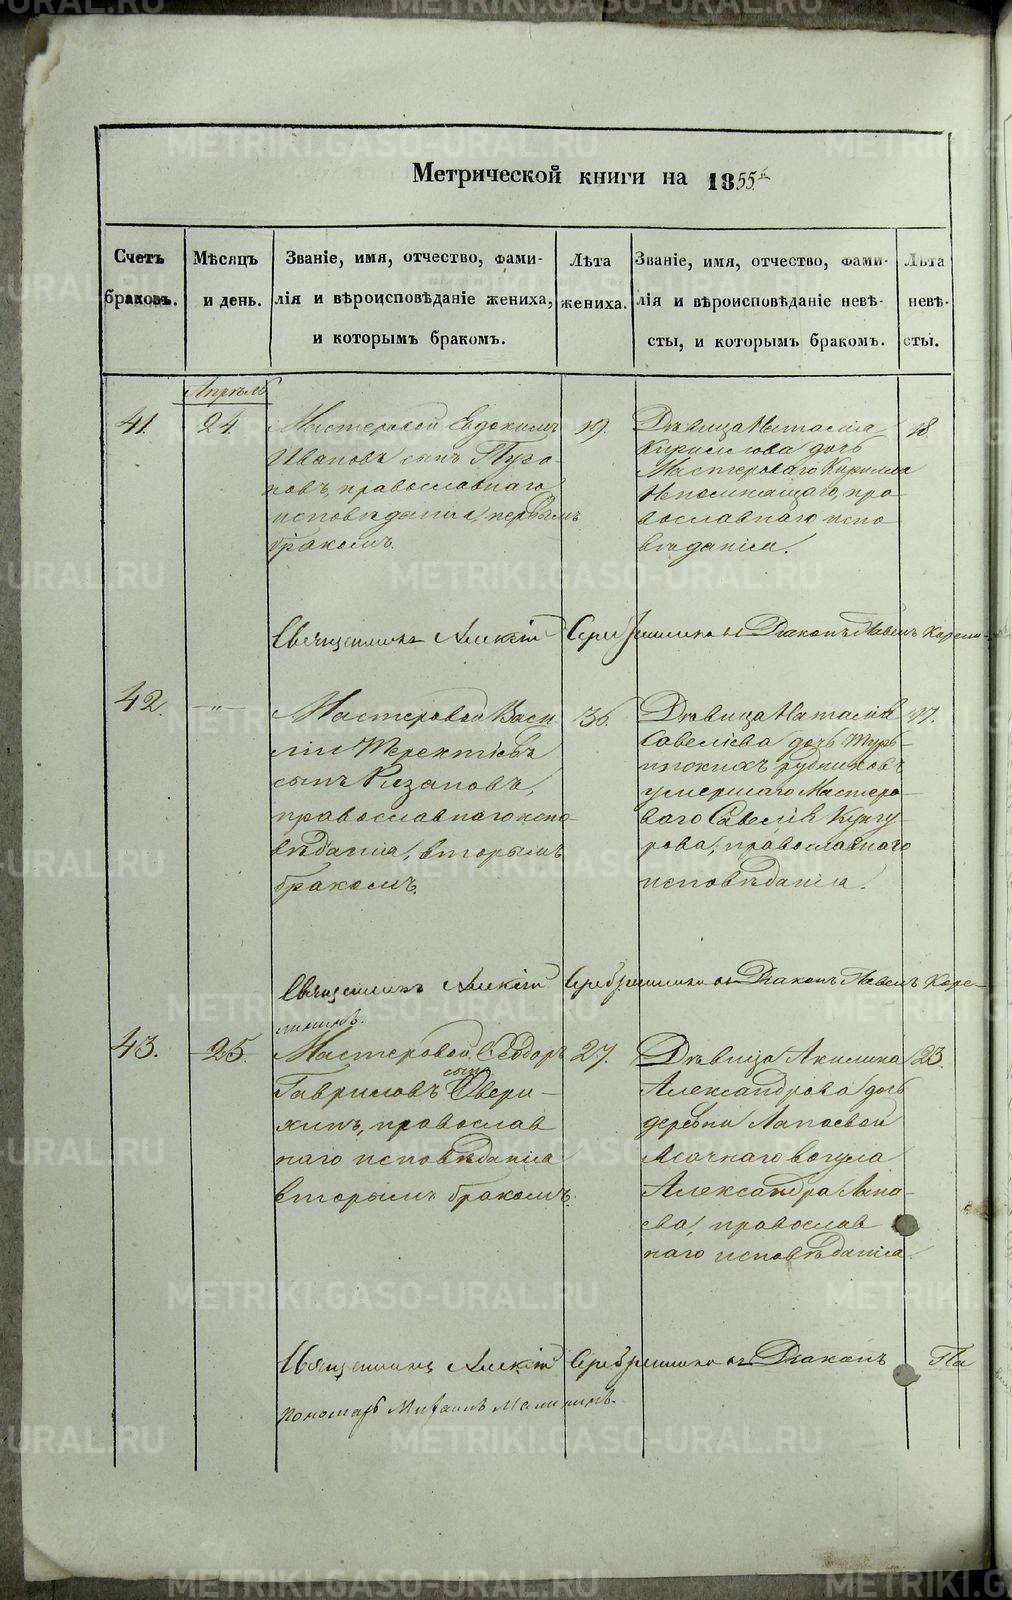 Метрической книги на 1855й
Счетъ браковъ.
Мѣсяцъ и день.
Званіе, имя, отчество, фами-
лія и вѣроисповѣданіе жениха,
и которымъ бракомъ.
Лѣта жениха.
Званіе, имя, отчество, фами-
лія и вѣроисповѣданіе невѣ-
сты, и которымъ бракомъ.
Лѣта невѣ-
сты.
Апрѣль
41.
24.
Мастеровой Евдокимъ
Ивановъ сынъ
новъ, православнаго
исповѣданія, первымъ
бракомъ.
19.
Дѣвица Наталія
Кирилова дочь
Мастероваго Кирилла
Непомнящаго, пра
вославнаго испо
вѣданія.
18
Священникъ Алексій Серебренниковъ Діаконъ Павелъ Карели-
42.
-"-
Мастеровой Васи
лій Терентіевъ
сынъ Рязановъ,
православнаго испо
вѣданія, вторымъ
бракомъ.
36.
Дѣвица Наталія
Савеліева дочь Турь-
инскихъ рудниковъ
умершаго Мастеро-
ваго Савелія Кунгу-
рова, православнаго
исповѣданія.
Священникъ Алексій Серебренниковъ Діаконъ Павелъ Каре-
лининъ.
43.
25.
Мастеровой Ѳеодоръ
Гавриловъ сынъ Овери-
хинъ, православ
наго исповѣданія
вторымъ бракомъ.
27.
Дѣвица Акилина
Александрова дочь
деревни Лапаевой
Ясачнаго вогула
Александра Лапа-
ева, православ
наго исповѣданія.
23.
Священникъ Алексій Серебренниковъ Діаконъ Па
Пономарь Михаилъ Малининъ.
METRIKI.GASO-URAL.RU